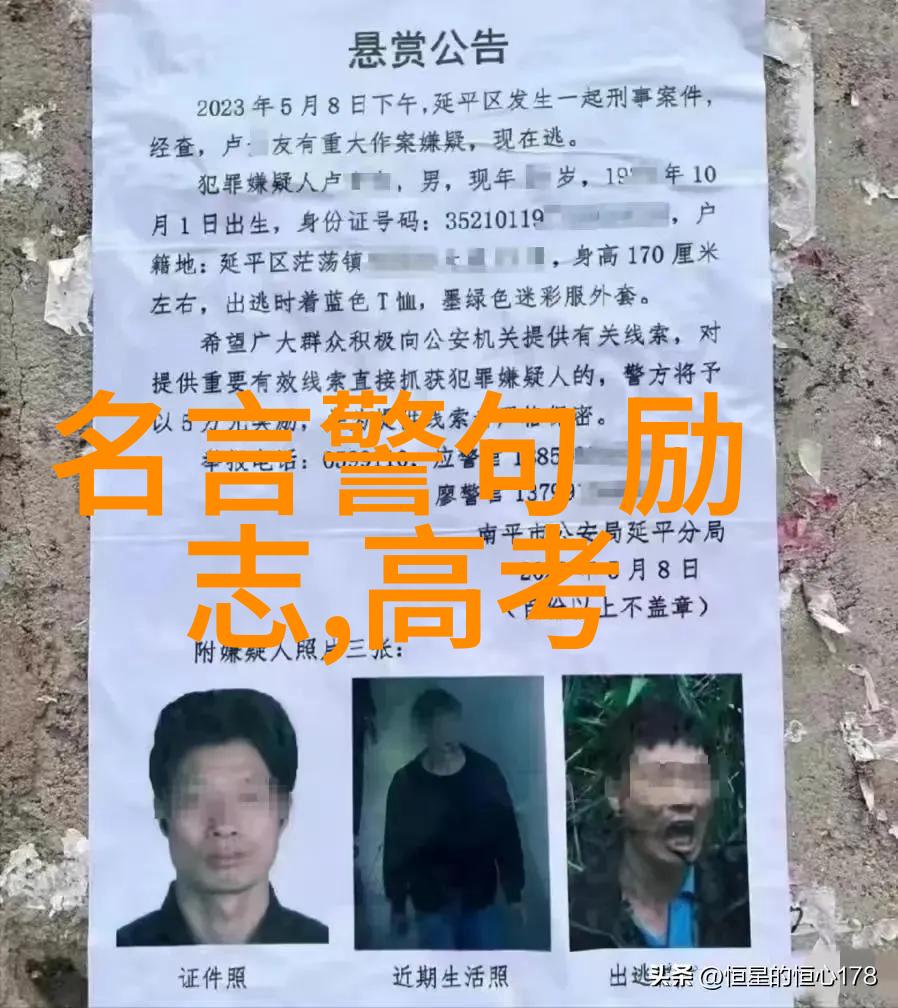 悬赏公告
2023年5月8日下午,延平区发生一起刑事案件,
经查,卢 友有重大作案嫌疑,现在逃。
犯罪嫌疑人卢 ,男,现年 岁,19 年10
月1日出生,身份证号码:35210119 ,户
籍地:延平区茫荡镇 ,身高170厘米
左右,出逃时着蓝色T恤,墨绿色迷彩服外套。
希望广大群众积极向公安机关提供有关线索,对
提供重要有效线索直接抓获犯罪嫌疑人的,警方将予
以5万元奖励, 线索 密。
举报电话: 应警官
廖警官
名言警句 励
志,高考
南平市公安局延平分局
月8日
以上不盖章)
附嫌疑人照片三张:
证件照
近期生活照
出逃
头条 @恒星的恒心178